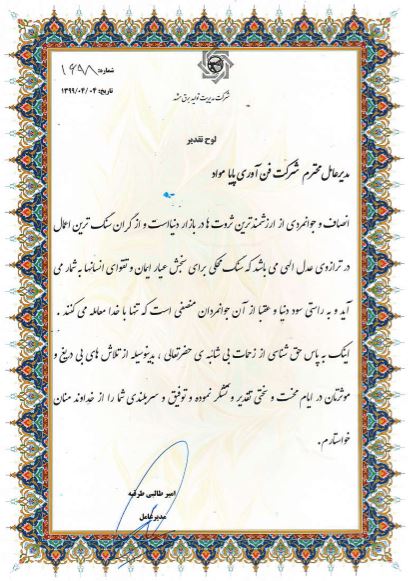 شماره: ۱۶۹۸
تاریخ: ۱۳۹۹/۰۴/۰۴
شرکت مدیریت تولید برق مشهد
لوح تقدیر
مدیرعامل محترم شرکت فن آوری پایا مواد
انصاف و جوانمردی از ارزشمندترین ثروت ها در بازار دنیاست و از گران سنگ ترین اعمال
در ترازوی عدل الهی می باشد که سنگ محکی برای سنجش عیار ایمان و تقوای انسانها به شمار می
آید و به راستی سود دنیا و عقبا از آن جوانمردان منصفی است که تنها با خدا معامله می کنند .
اینک به پاس حق شناسی از زحمات بی شائبه ی حضرتعالی ، بدینوسیله از تلاش های بی دریغ و
موثرتان در ایام محنت و سختی تقدیر و تشکر نموده و توفیق و سربلندی شما را از خداوند منان
خواستارم.
امیر طالبی طرقبه
مدیرعامل